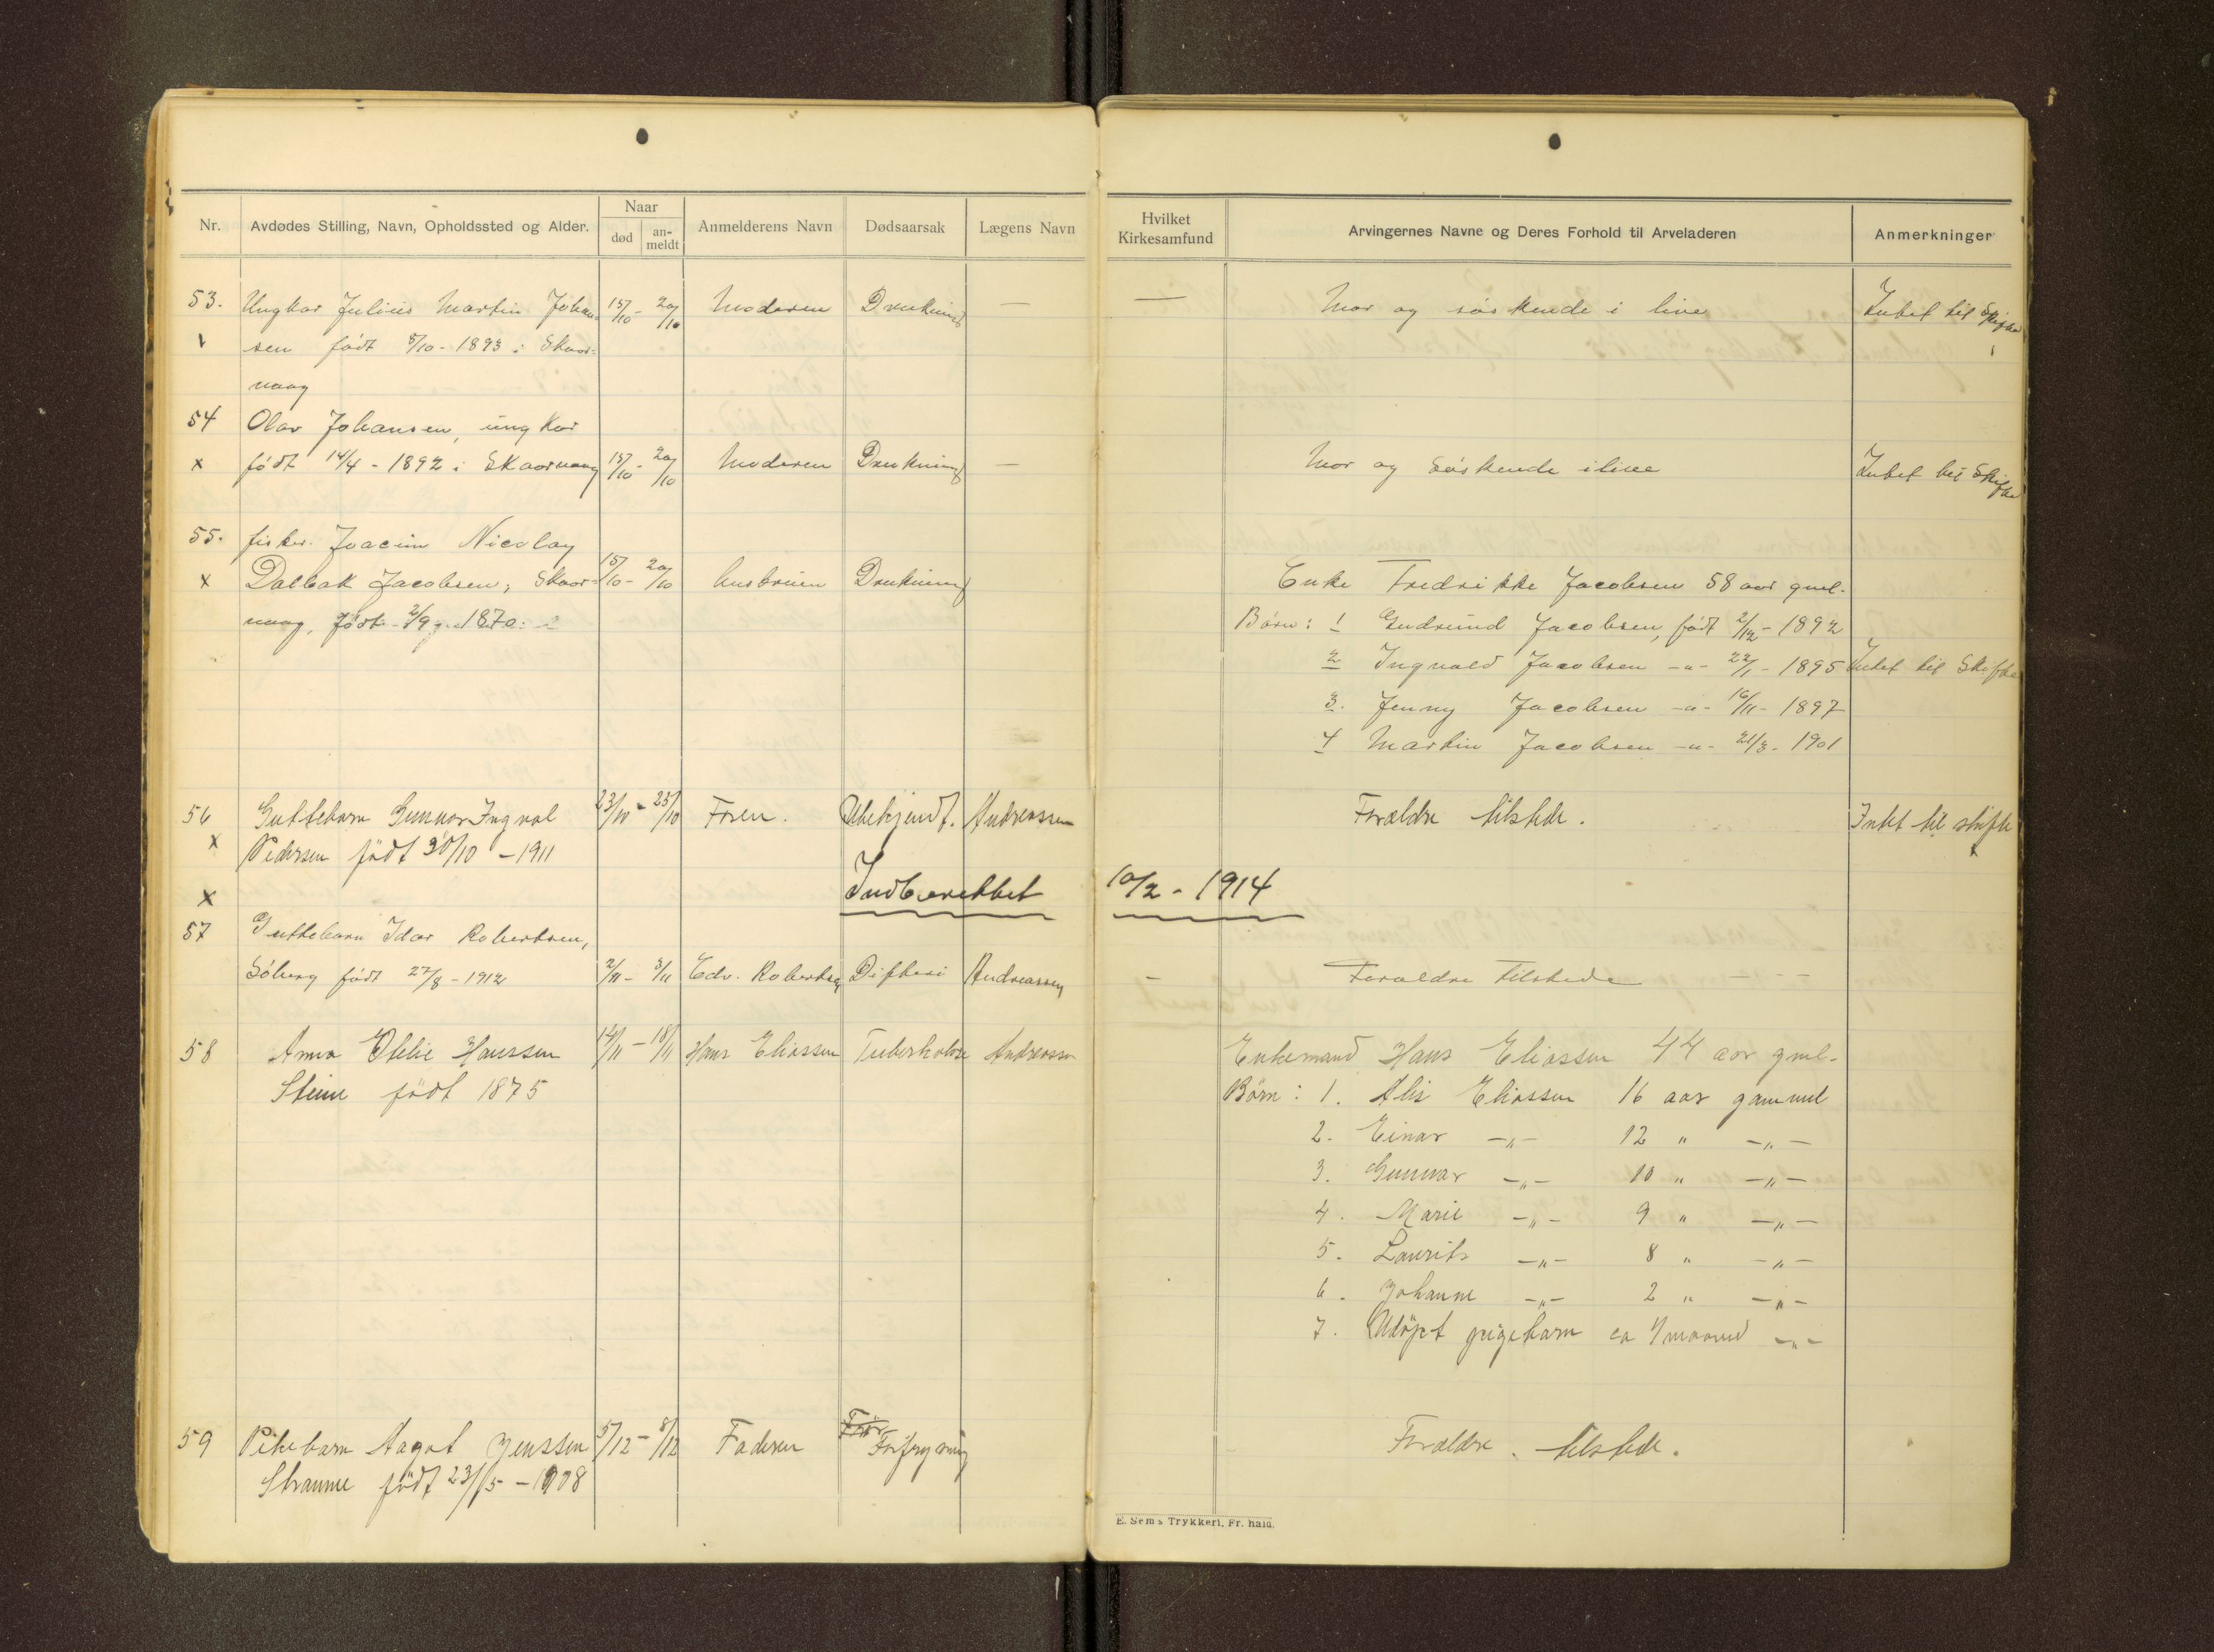 Nr.
Avdødes Stilling, Navn, Opholdssted og Alder.
Naar
død
an-
meldt
Anmelderens Navn
Dødsaarsak
Lægens Navn
Hvilket
Kirkesamfund
Arvingernes Navne og Deres Forhold til Arveladeren
Anmerkninger
53. Ungkar Julius Martin Johan- 15/10 - 20/10 Moderen Drukning — — Mor og søskende i live Intet til Skifte
sen født 5/10 - 1893 i Skaar-
vaag
54 Olav Johansen, ungkar
x født 14/4 - 1892 i Skaarvaag 15/10 - 20/10 Moderen Drukning — Mor og Søskende ilive Intet til Skifte
55. fisker. Joacim Nicolay
x Dalbak Jacobsen, Skaar- 15/10 - 20/10 husbruen Drukning Enke Fredrikke Jacobsen 58 aar gml.
vaag, født 2/9 - 1870 Børn: 1 Gudrund Jacobsen, født 2/12 - 1892
2 Ingvald Jacobsen -"- 22/1 - 1895 Intet til Skifte
3. Jenny Jacobsen -"- 16/11 - 1897
4 Martin Jacobsen -"- 21/3 - 1901
56 Guttebarn Gunnar Ingval 23/10 - 25/10 Faren. Ubekjendt. Andreassen Forældre tilstede. Intet til skifte
x Pedersen født 30/10 - 1911 x
x Indberettet 10/2 - 1914
57 Guttebarn Idar Robertsen,
Søberg født 27/8 - 1912 2/11 - 3/11 Edv. Robertsen Difteri Andreassen — Forældre Tilstede
58 Anna Otelie Hanssen 14/11 - 18/11 Hans Eliassen Tuberkolose Andreassen Enkemand Hans Eliassen 44 aar gml.
Steine født 1875 Børn: 1. Alis Eliassen 16 aar gammel
2. Einar -"- 12 " -"-
3. Gunnar -"- 10 " -"-
4. Marie -"- 9 " -"-
5. Laurits -"- 8 " -"-
6. Johanne -"- 2 " -"-
7. Udøpt pigebarn ca 1 maaned -"-
59 Pikebarn Aagot Jenssen 5/12 - 8/12 Faderen Forældre. tilstede.
Straume født 23/5 - 1908
E. Sems Trykkeri, Fr.hald.